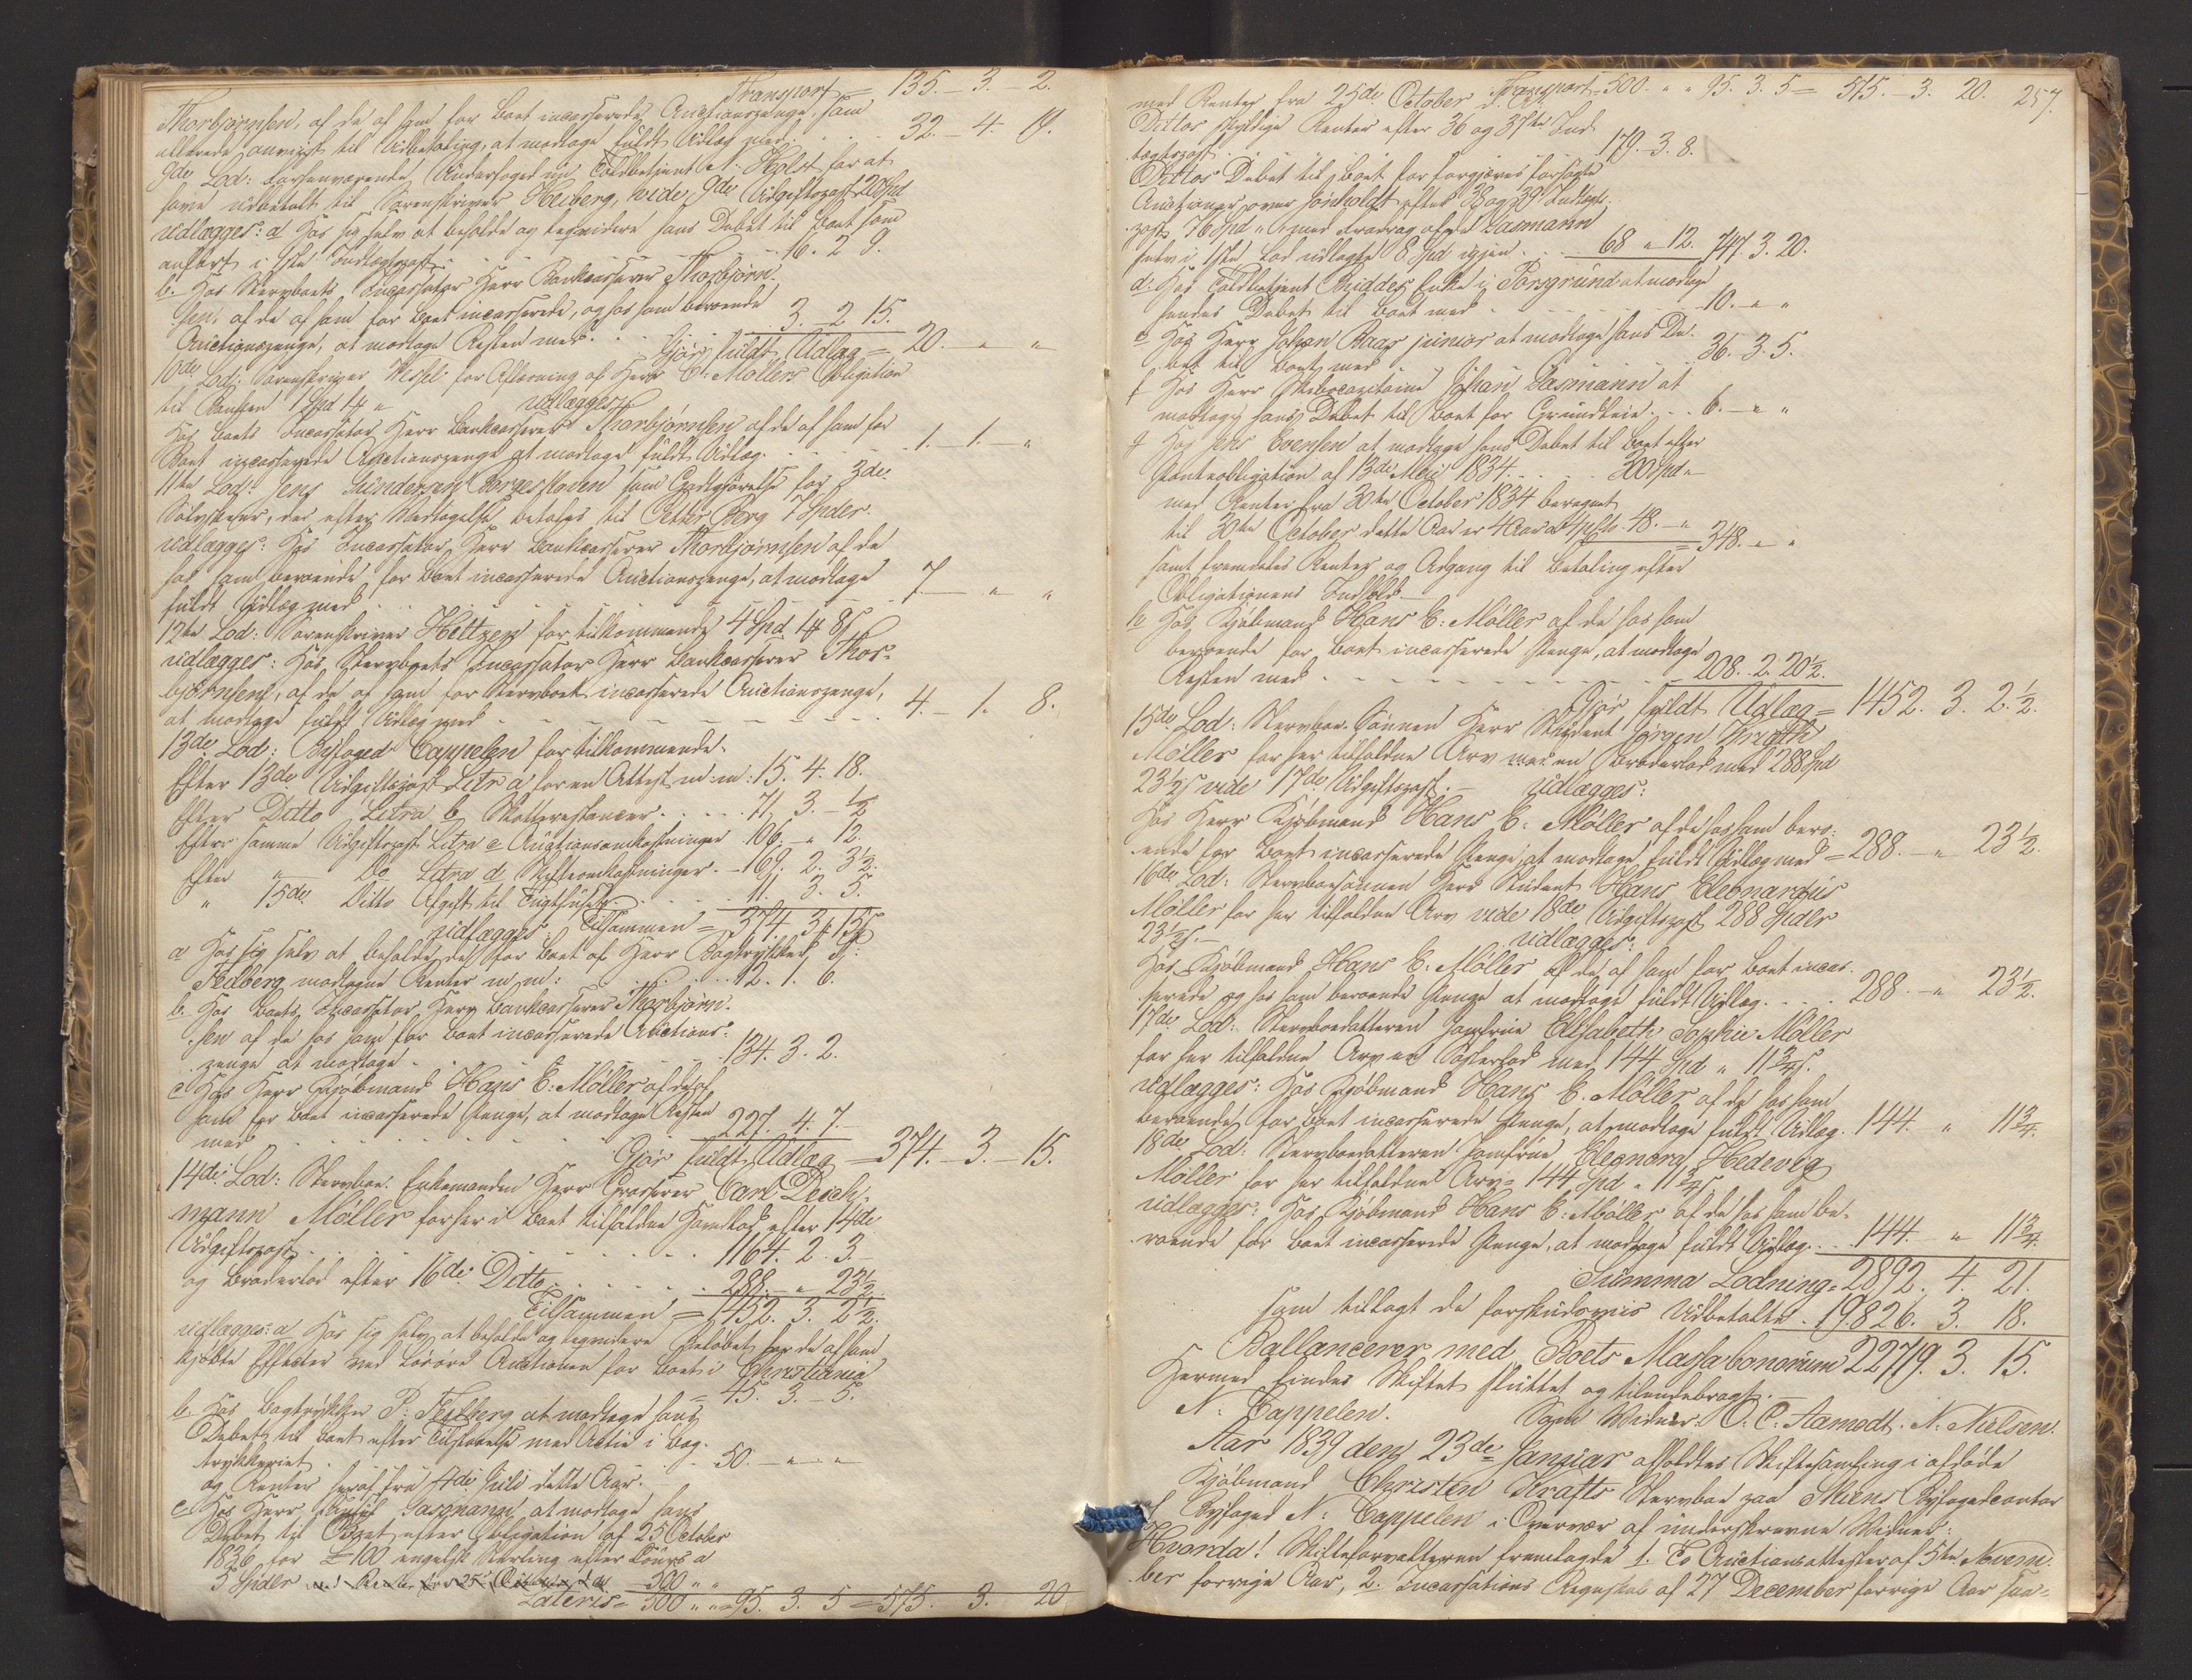 Transport = 135. - 3. - 2.
Thorbjørnsen, af de af ham for Boet incasserede Auctionspenge, som
allerede anviist til Udbetaling, at modtage fuldt Udlæg med . . . 32. - 4. 19.
9de Lod: forhenværende Undersøged nu Toldbetjent N. Holst for at
have udbetalt til Sorenskriver Heiberg, vide 9de Udgiftspost 20 Spd
udlægges: a Hos sig selv at beholde og liqvidere hans Debet til Boet som
anført i 1ste Indtægtspost . . . 16. 2. 9.
b. Hos Stervboets Incassator Herr Bankcasserer Thorbjørn-
sen af de af ham for Boet incasserede, og hos ham beroende
Auctionspenge, at modtage Resten med . . . 3. 2. 15.
Gjør fuldt Udlæg = 20. - " "
10de Lod: Sorenskriver Wessel for Aflæsning af Herr C. Møllers Obligation
til Banken 1 Spd 1 # " udlægges
Hos Boets Incassator Herr Bankcasserer Thorbjørnsen af de af ham for
Boet incasserede Auctionspenge at modtage fuldt Udlæg . . . 1. - 1. - "
11te Lod: Jens Gundersen Borgeskoven som Godtgjørelse for 3de
Sølvskeer, der efter Vedtagelse betales til Peter Berg 7 Spdlr.
udlægges: Hos Incassator Herr Bankcasserer Thorbjørnsen af de
hos ham beroende for Boet incasserede Auctionspenge, at modtage
fuldt Udlæg med . . . 7. - " "
12te Lod: Sorenskriver Heltzen for tilkommende 4 Spd 1 # 8 s
udlægges: Hos Stervboets Incassator Herr Bankcasserer Thor-
bjørnsen, af de af ham for Stervboet incasserede Auctionspenge,
at modtage fuldt Udlæg med . . . 4. - 1. 8.
13de Lod: Byfoged Cappelen for tilkommende.
Efter 13de Udgiftspost Litr a for en Attest m: m: 15. 4. 18.
Efter Ditto Litra b Skatterestancer . . . 71. 3. - ½
Efter samme Udgiftspost Litra c Auctionsomkostninger 106. - " 12.
Efter " Do Litra d Skifteomkostninger. - 169. 2. 3½.
" 15de Ditto Afgift til Tugthuset . . . 11. 3. 5.
udlægges: Tilsammen = 374. 3 # 15 s
a Hos sig selv at beholde det for Boet af Herr Bogtrykker P.
Feilberg modtagne Renter m m: . . . 12. 1. 6.
b. Hos Boets Incassator Herr Bankcasserer Thorbjørn-
sen af de hos ham for Boet incasserede Auctions-
penge at modtage . . . 134. 3. 2.
c Hos Herr Kjøbmand Hans C. Møller af de af
ham for Boet incasserede Penge, at modtage Resten
med . . . 227. 4. 7.
Gjør fuldt Udlæg = 374. - 3. - 15.
14de Lod: Stervboe Enkemanden Herr Grosserer Carl Deich-
mann Møller for her i Boet tilfaldne Hovedlod efter 14de
Udgiftspost . . . 1164. 2. 3.
og Broderlod efter 16de Ditto . . . 288. - " 23½.
Tilsammen = 1452. 3. 2½.
udlægges: a Hos sig selv at beholde og liqvidere Beløbet for de af ham
kjøbte Effecter ved Løsøre Auctionen for Boet i Christiania
= 45. 3. - 5.
b Hos Bogtrykker P. Feilberg at modtage hans
Debet til Boet efter Tilstaaelse med Actie i Bog-
trykkeriet . . . 50. - " - "
og Renter heraf fra 4de Juli dette Aar.
c Hos Herr Gasmann, at modtage hans
Debet til Boet efter Obligation af 25 October
1836 for £ 100 engelsk Sterling efter Cours a
5 Spdler . . . 500 " "
Lateris = 500 " " = 95. 3. 5 = 575. 3. 20
Transport 500. " " 95. 3. 5 = 515. - 3. 20. 257.
med Renter fra 25de October d. A.
Dittos skyldige Renter efter 36 og 37te Ind-
tægtspost . . . 179. 3. 8.
Dittos Debet til Boet for forgjæves forsøgte
Auctioner over Jønholdt efter 38 og 39 Indtægts-
post 76 Spd " med Fradrag af de Gasmann
selv i 1ste Lod udlagte 8 Spd igjen . . . 68 " 12. 747. 3. 20.
d. Hos Toldbetjent Ridders Enke i Porsgrund at modtage
hendes Debet til Boet med . . . 10. - " "
e Hos Herr Johan Baar junior at modtage hans De-
bet til Boet med . . . 36. 3. 5.
f Hos Herr Skibscapitaine Johan Gasmann at
modtage hans Debet til Boet for Grundleie . . . 6. - " "
g Hos Jens Evensen at modtage hans Debet til Boet efter
Panteobligation af 13de Mai 1834 . . . 300 Spd "
med Renter fra 30te October 1834 beregnet
til 30te October dette Aar er 4 Aar a 4 pCto 48. - "
= 348. " "
samt fremdeles Renter og Adgang til Betaling efter
Obligationens Indhold. -
h Hos Kjøbmand Hans C. Møller af de hos ham
beroende for Boet incasserede Penge, at modtage
Resten med . . . 208. 2. 20½.
Gjør fuldt Udlæg = 1452. 3. 2½.
15de Lod: Stervboe Sønnen Herr Student Jørgen Krafth
Møller for her tilfaldne Arv med en Broderlod med 288 Spd
23½ s vide 17de Udgiftspost. - udlægges:
Hos Herr Kjøbmand Hans C. Møller af de hos ham bero-
ende for Boet incasserede Penge, at modtage fuldt Udlæg med = 288. - " 23½.
16de Lod: Stervboesønnen Herr Student Hans Eleonardus
Møller for her tilfalden Arv vide 18de Udgiftspost 288 Spdlr
23½ s. - udlægges:
Hos Kjøbmand Hans C. Møller af de af ham for Boet incas-
serede og hos ham beroende Penge at modtage fuldt Udlæg. . . . 288. - " 23½.
17de Lod: Stervboedatteren Jomfrue Elisabeth Sophie Møller
for her tilfaldne Arv en Søsterlod med 144 Spd " 11¾ s.
udlægges: Hos Kjøbmand Hans C. Møller af de hos ham
beroende for Boet incasserede Penge, at modtage fuldt Udlæg. 144. " 11¾.
18de Lod: Stervboedatteren Jomfrue Eleonora Hedevig
Møller for her tilfalden Arv = 144 Spd " 11¾ s
udlægges: Hos Kjøbmand Hans C. Møller af de hos ham be-
roende for Boet incasserede Penge, at modtage fuldt Udlæg. . . 144. " 11¾.
Summa Lodning = 2892. 4. 21.
som tillagt de forskudsviis Udbetalte . 19826. 3. 18.
Ballancerer med Boets Massa bonorum 22719. 3. 15.
Hermed findes Skiftet sluttet og tilendebragt. -
N. Cappelen. Som Vidner: O. C. Aamodt. N. Nielsen.
Aar 1839 den 23de Januar afholdtes Skiftesamling i afdøde
Kjøbmand Christen Krafts Stervboe paa Skiens Byfogedcontor
af Byfoged N. Cappelen i Overvær af underskrevne Vidner:
Hvorda! Skifteforvalteren fremlagde 1. To Auctionsattester af 5te Novem-
ber forrige Aar, 2. Incassations Regnskab af 27 December forrige Aar saa-